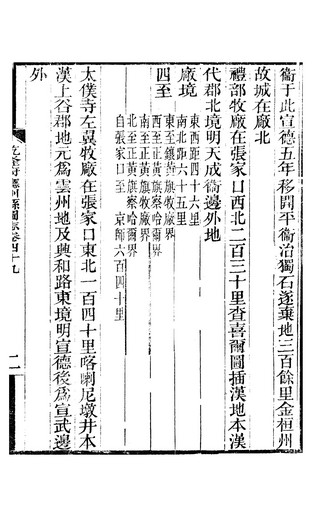 衞于此宣德五年移開平衞治獨石遂棄地三百餘里金桓州
故城在廠北
禮部牧廠在張家口西北二百三十里查喜爾圖插漢地本漢
代郡北境明天成衞邊外地
廠境
東西距四十六里
南北距六十五里
四至
東至鑲黃旗牧廠界
西至正黃旗察哈爾界
南至正黃旗牧廠界
北至正黃旗察哈爾界
自張家口至 京師六百四十里
太僕寺左翼牧廠在張家口東北一百四十里喀喇尼墩井本
漢上谷郡地元爲雲州地及興和路東境明宣德後爲宣武邊
外
乾隆府廳州縣圖志卷四十九
二